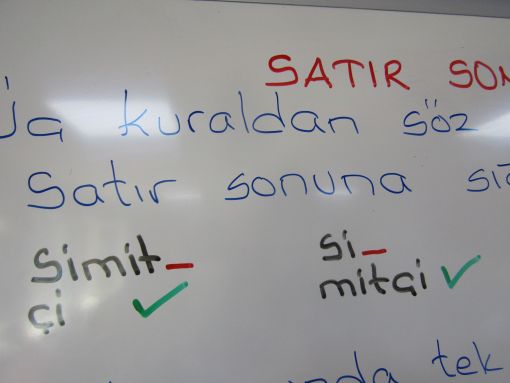 SATIR SON
kuraldan söz
Satır sonuna
Simit_
çi
Si_
mitçi
tek